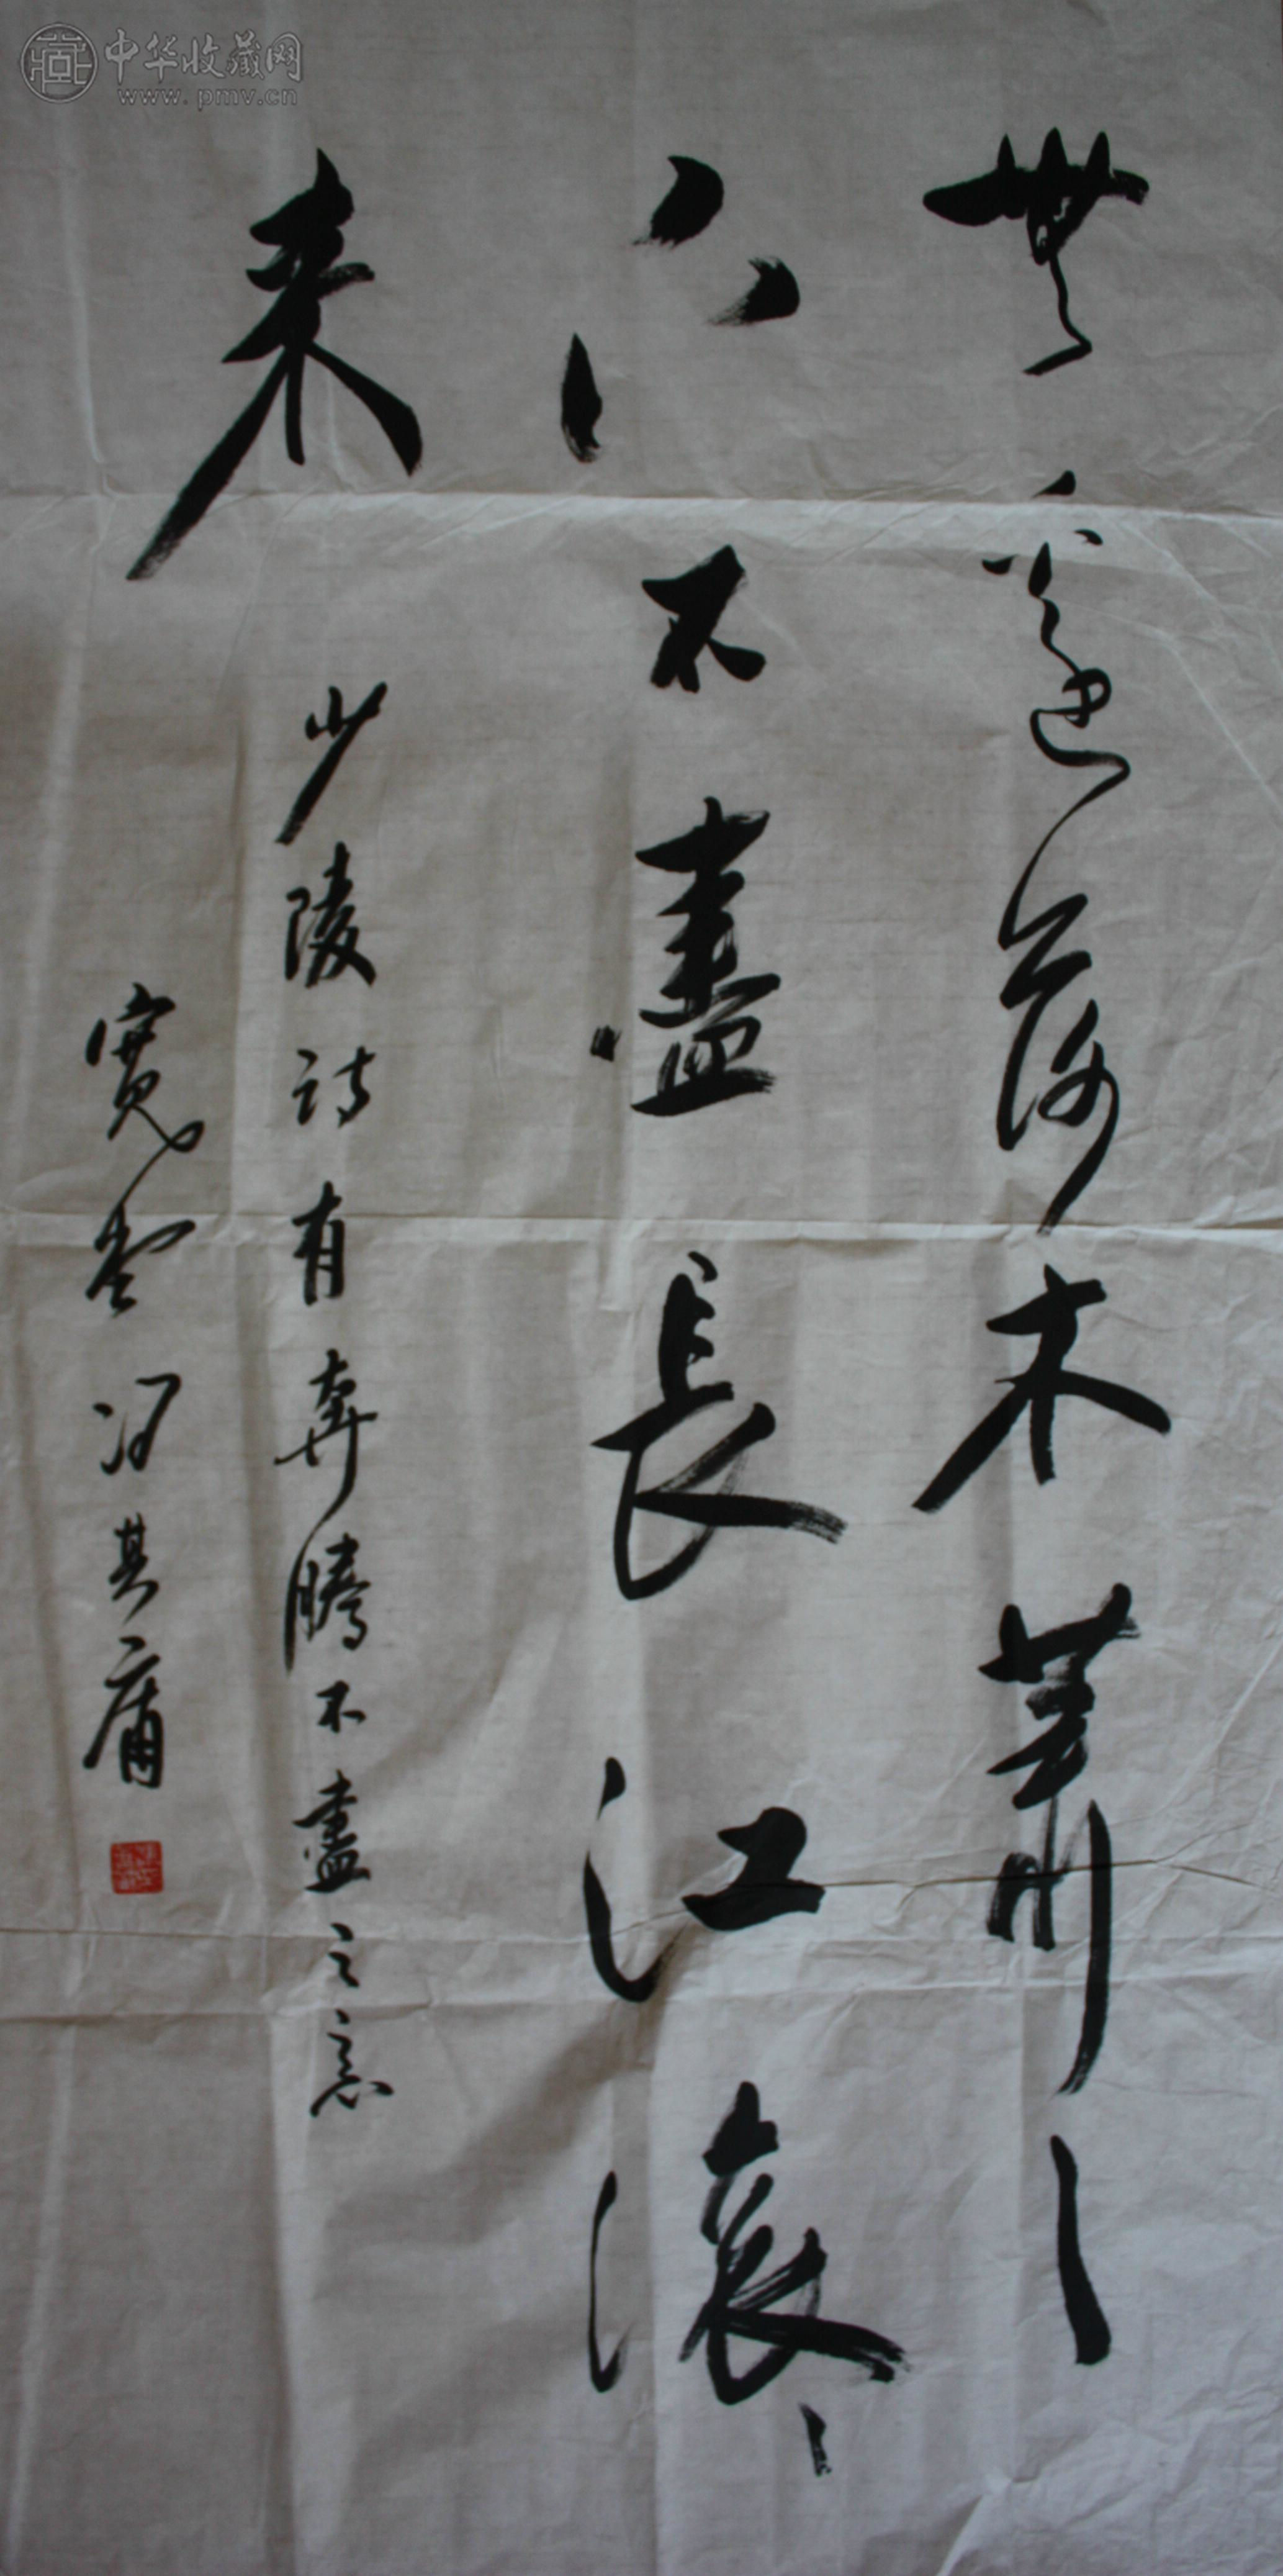 無邊落木蕭〻
下不盡長江滾〻
来
少陵詩有奔騰不盡之意
寬堂馮其庸
中华收藏网
www.pmv.cn